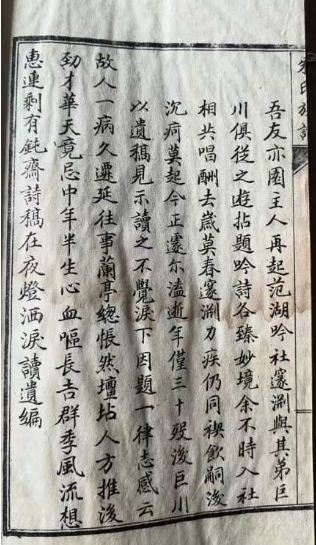 吾友亦園主人再起范湖吟社邃淵與其弟巨
川俱從之遊拈題吟詩各臻妙境余不時入社
相共唱酬去歲莫春邃淵力疾仍同禊飲嗣後
沉痾莫起今正遽尔溘逝年僅三十歿後巨川
以遺稿見示讀之不覺淚下因題一律志感云
故人一病久遷延往事蘭亭總悵然壇坫人方推後
勁才華天竟忌中年半生心血嘔長吉群季風流想
惠連剩有鈍齋詩稿在夜燈洒淚讀遺編